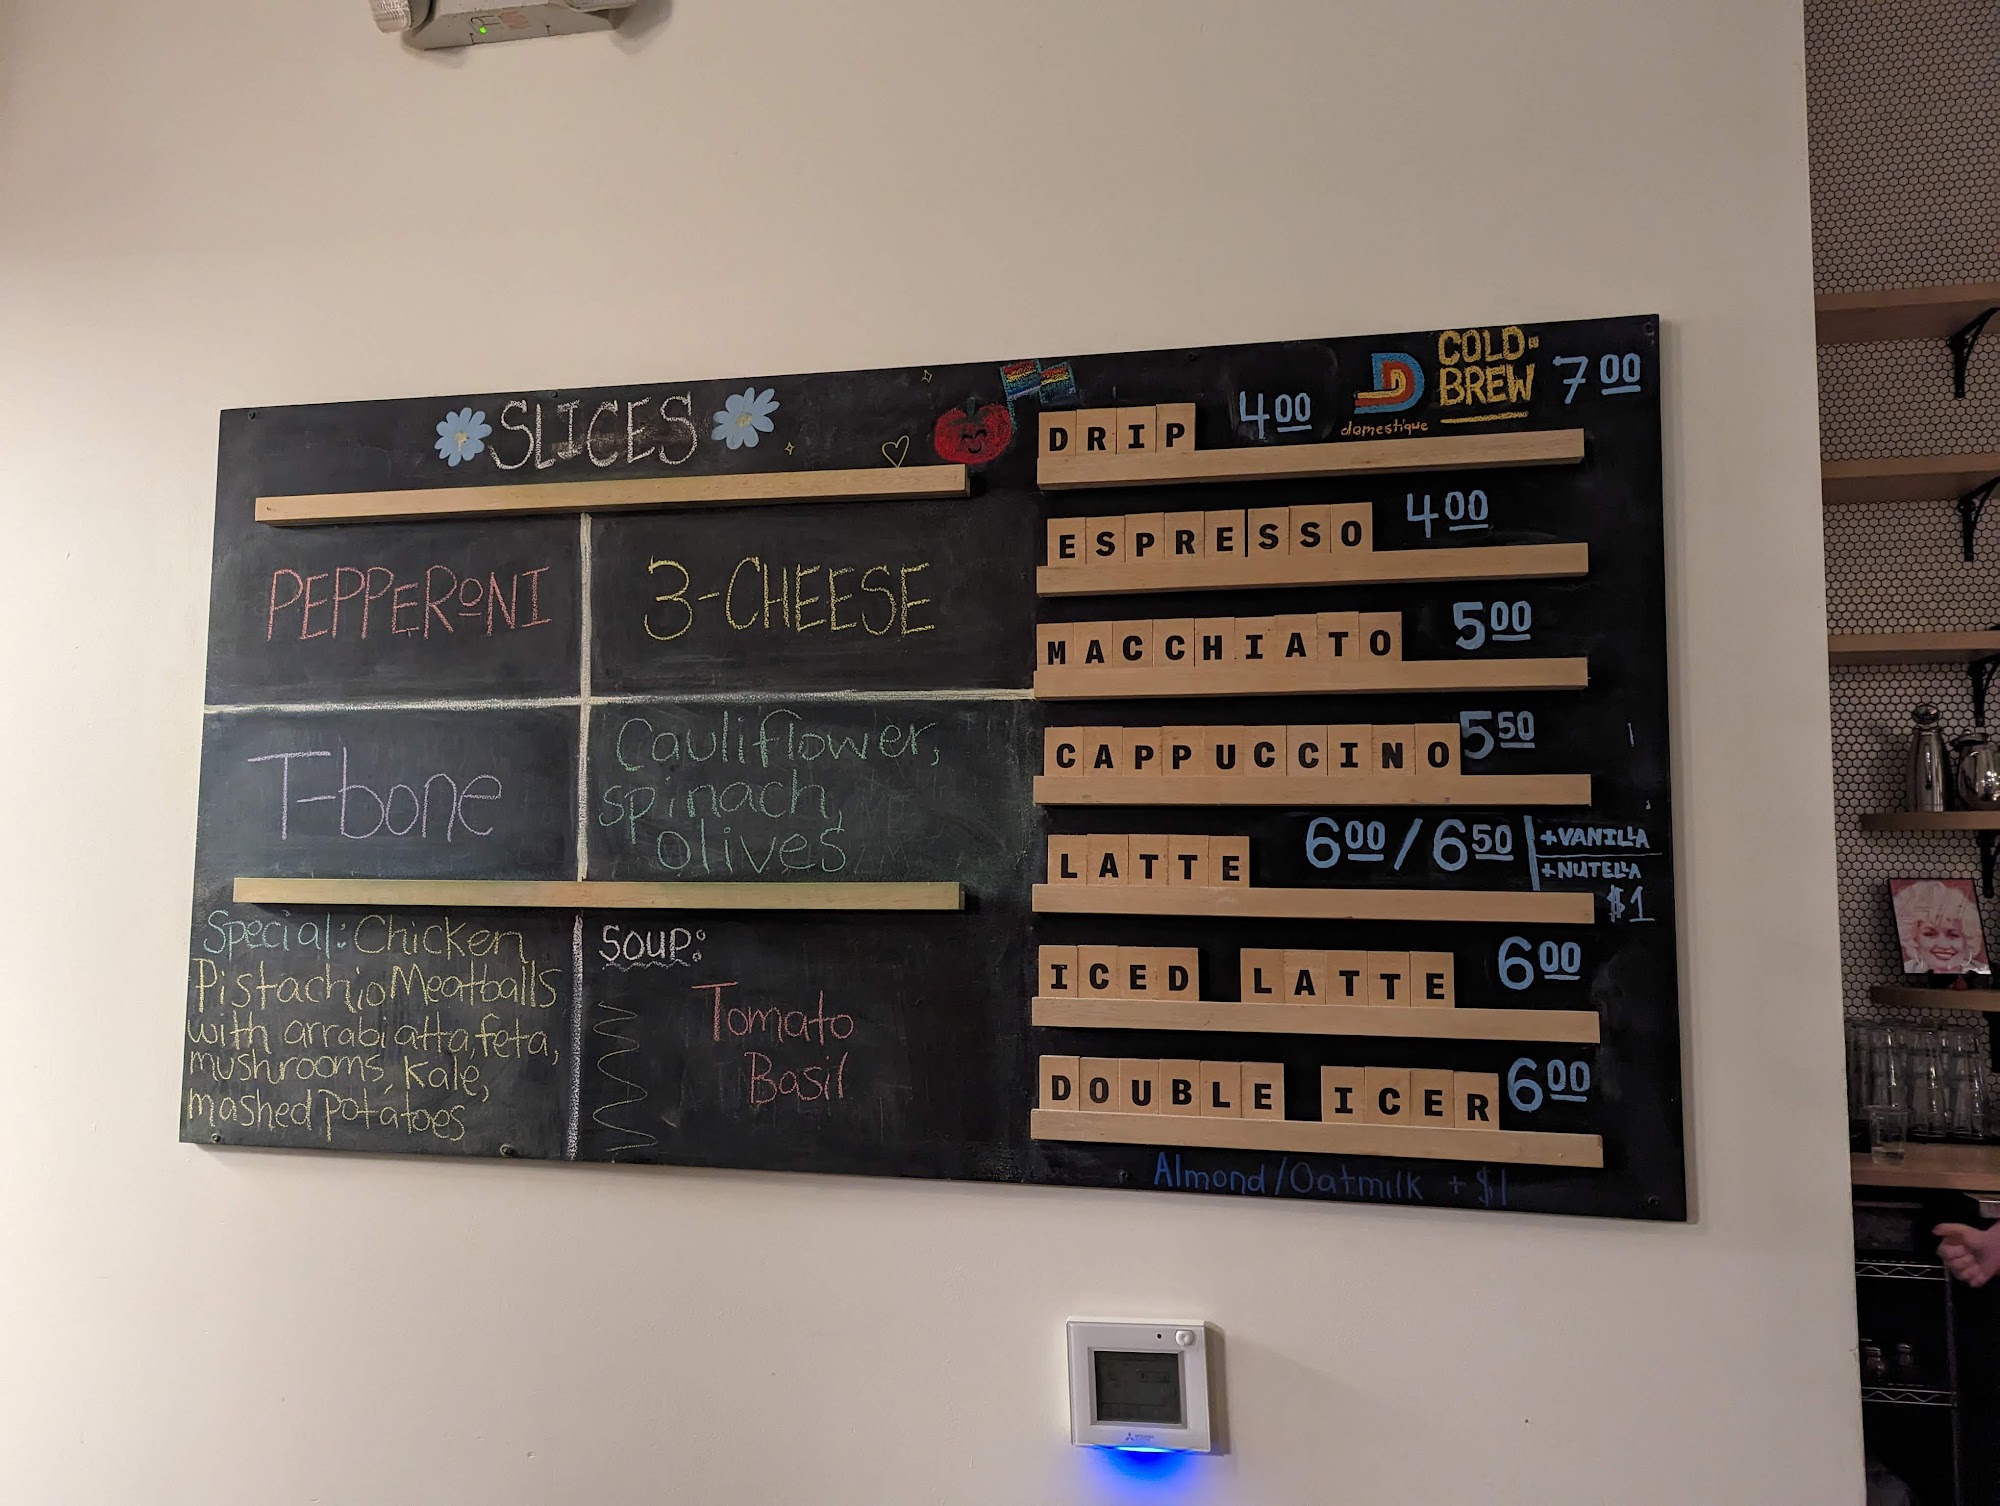 SLICES
PEPPERONI
3-CHEESE
T-bone
Cauliflower,
spinach,
olives
Special: Chicken
Pistachio Meatballs
with arrabiatta, feta,
mushrooms, Kale,
mashed potatoes
SOUP:
Tomato
Basil
DRIP 4.00
domestique
COLD-
BREW 7.00
ESPRESSO 4.00
MACCHIATO 5.00
CAPPUCCINO 5.50
LATTE 6.00/6.50
+VANILLA
+NUTELLA
$1
ICED LATTE 6.00
DOUBLE ICER 6.00
Almond/Oatmilk + $1